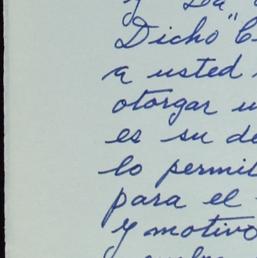 y "La"
Dicho
a usted
otorgar
es su de
lo permit
para el
y motivo